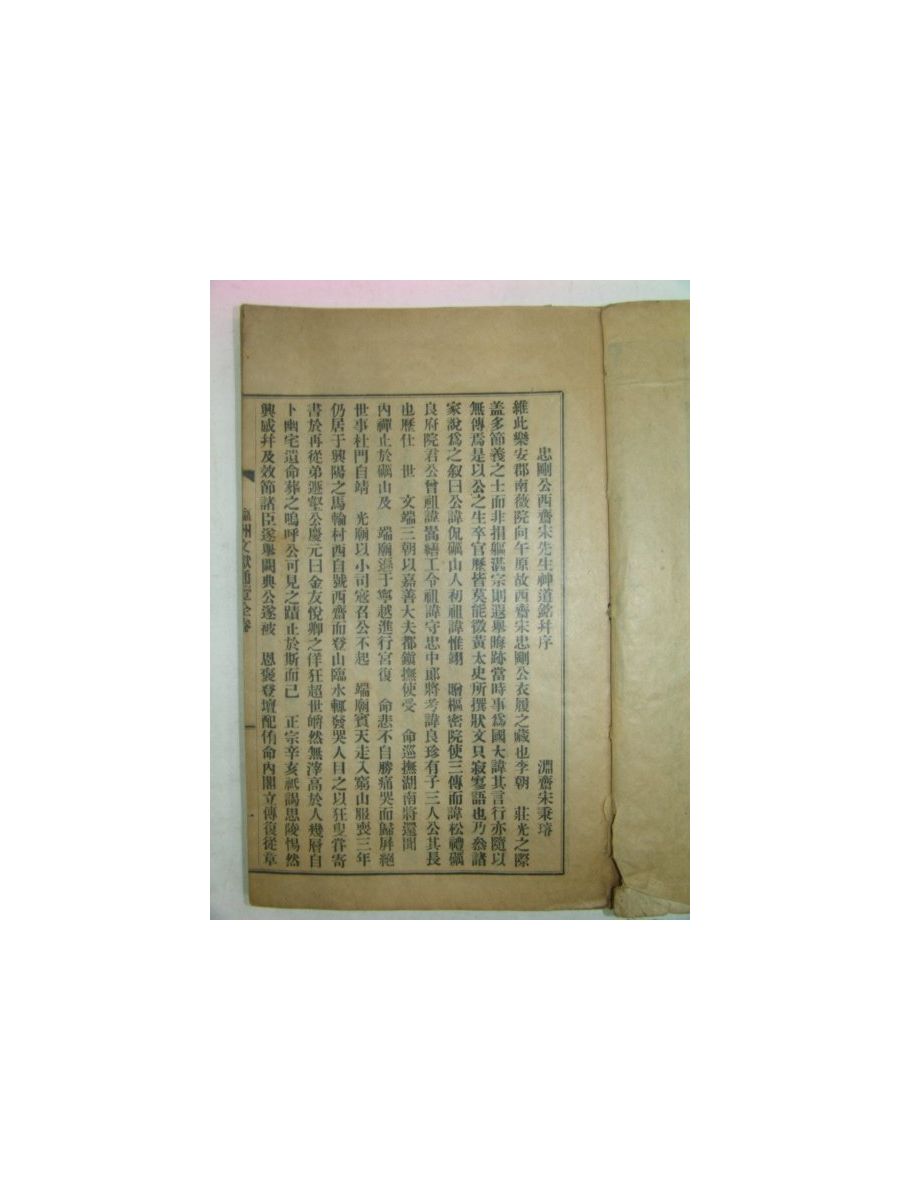 忠剛公西齋宋先生神道銘幷序 淵齋宋秉璿
維此樂安郡南薇院向午原故西齋宋忠剛公衣履之藏也李朝 莊光之際
盖多節義之士而非捐軀湛宗則遐舉晦跡當時事爲國大諱其言行亦隨以
無傳焉是以公之生卒官歷皆莫能徵黃太史所撰狀文只寂寥語也乃叅諸
家說爲之叙曰公諱侃礪山人初祖諱惟翊 贈樞密院使三傳而諱松禮礪
良府院君公曾祖諱 繕工令祖諱守忠中郞將考諱良珍有子三人公其長
也歷仕 世 文端三朝以嘉善大夫都鎭撫使受 命巡撫湖南將還聞
內禪止於礪山及 端廟遜于寧越進行宮復 命悲不自勝痛哭而歸屛絕
世事杜門自靖 光廟以小司寇召公不起 端廟賓天走入窮山服喪三年
仍居于興陽之馬輪村西自號西齋而登山臨水輒發哭人目之以狂叟甞寄
書於再從弟遯壑公慶元曰金友悅卿之佯狂超世皭然無滓高於人幾層自
卜幽宅遺命葬之嗚呼公可見之蹟止於斯而已 正宗辛亥祇謁思陵惕然
興感幷及效節諸臣遂舉闕典公遂被 恩褒登壇配侑命內閣立傳復從章
州文獻通 全卷
一